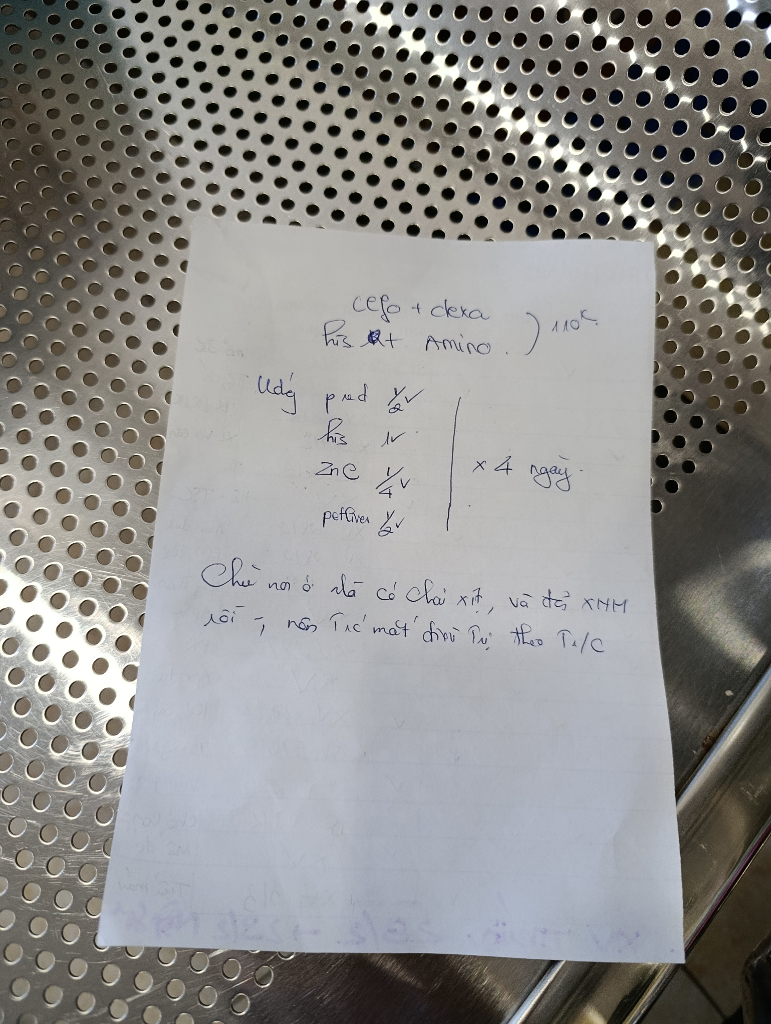 Cefo + dexa
his + Amino. ) 110K
Uống pred 1/2 v
his 1v
ZnC 1/4 v
petliver 1/2 v
x 4 ngày.
Chủ nói ở nhà có chai xịt, và đã XNM
rồi → nên Trc mắt điều Trị theo Tr/C